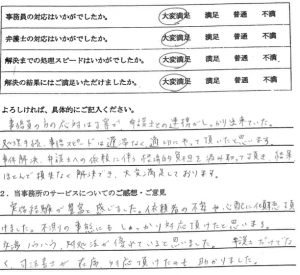 事務員の対応はいかがでしたか。 大変満足 満足 普通 不満
弁護士の対応はいかがでしたか。 大変満足 満足 普通 不満
解決までの処理スピードはいかがでしたか。 大変満足 満足 普通 不満
解決の結果にはご満足いただけましたか。 大変満足 満足 普通 不満
よろしければ、具体的にご記入ください。
事務員の方の応対は丁寧で弁護士との連携がしっかり出来ていた。
処理スピードは遅滞なく適切にやって頂いたと思います。
事件解決、弁護士への依頼に伴う経済的負担を 結果
ほとんど損失なく解決でき、大変満足しております。
2．当事務所のサービスについてのご感想・ご意見
実務経験が豊富と感じました。依頼者の不安や心配に 頂け
ました。不測の事態にもしっかり対応頂けたと思います。
対処法が優れていると思いました。弁護士だけでな
く、司法書士が在席 対応頂けたのも助かりました。